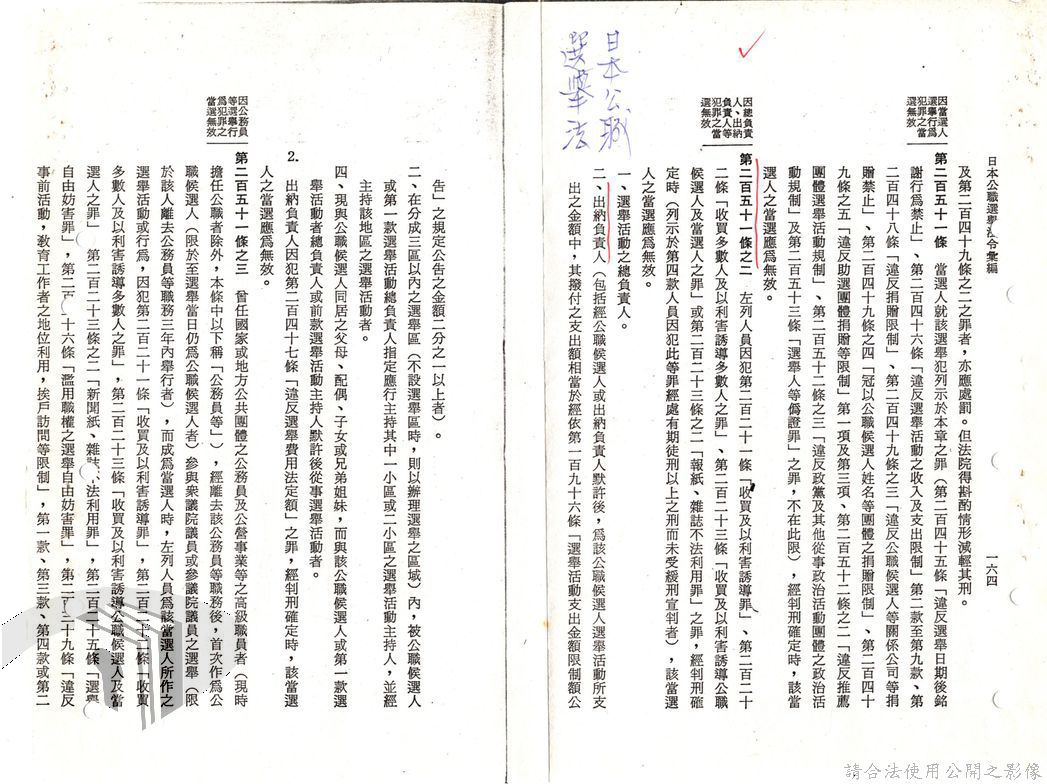 日本公職
選舉法
日本公職選舉法令彙編
一六四
及第二百四十九條之二之罪者，亦應處罰。但法院得斟酌情形減輕其刑。
因當選人
選舉行為
犯罪之當
選無效
第二百五十一條　當選人就該選舉犯列示於本章之罪（第二百四十五條「違反選舉日期後銘
謝行為禁止」、第二百四十六條「違反選舉活動之收入及支出限制」第二款至第九款、第
二百四十八條「違反捐贈限制」、第二百四十九條之三「違反公職候選人等關係公司等捐
贈禁止」、第二百四十九條之四「冠以公職候選人姓名等團體之捐贈限制」、第二百四十
九條之五「違反助選團體捐贈等限制」第一項及第三項、第二百五十二條之二「違反推薦
團體選舉活動規制」、第二百五十二條之三「違反政黨及其他從事政治活動團體之政治活
動規制」及第二百五十三條「選舉人等偽證罪」之罪，不在此限），經判刑確定時，該當
選人之當選應為無效。
因總負責
人、出納
負責人等
犯罪之當
選無效
第二百五十一條之二　左列人員因犯第二百二十一條「收買及以利害誘導罪」、第二百二十
二條「收買多數人及以利害誘導多數人之罪」、第二百二十三條「收買及以利害誘導公職
候選人及當選人之罪」或第二百二十三條之二「報紙、雜誌不法利用罪」之罪，經判刑確
定時（列示於第四款人員因犯此等罪經處有期徒刑以上之刑而未受緩刑宣判者），該當選
人之當選應為無效。
一、選舉活動之總負責人。
二、出納負責人（包括經公職候選人或出納負責人默許後，為該公職候選人選舉活動所支
出之金額中，其撥付之支出額相當於經依第一百九十六條「選舉活動支出金額限制額公
告」之規定公告之金額二分之一以上者）。
二、在分成三區以內之選舉區（不設選舉區時，則以辦理選舉之區域）內，被公職候選人
或第一款選舉活動總負責人指定應行主持其中一小區或二小區之選舉活動主持人，並經
主持該地區之選舉活動者。
四、現與公職候選人同居之父母、配偶、子女或兄弟姐妹，而與該公職候選人或第一款選
舉活動者總負責人或前款選舉活動主持人默許後從事選舉活動者。
2. 出納負責人因犯第二百四十七條「違反選舉費用法定額」之罪，經判刑確定時，該當選
人之當選應為無效。
因公務員
等選舉行
為犯罪之
當選無效
第二百五十一條之三　曾任國家或地方公共團體之公務員及公營事業等之高級職員者（現時
擔任公職者除外，本條中以下稱「公務員等」），經離去該公務員等職務後，首次作為公
職候選人（限於至選舉當日仍為公職候選人者）參與眾議院議員或參議院議員之選舉（限
於該人離去公務員等職務三年內舉行者），而成為當選人時，左列人員為該當選人所作之
選舉活動或行為，因犯第二百二十一條「收買及以利害誘導罪」，第二百二十二條「收買
多數人及以利害誘導多數人之罪」，第二百二十三條「收買及以利害誘導公職候選人及當
選人之罪」　第二百二十三條之二「新聞紙、雜誌、法利用罪」，第二百二十五條「選舉
自由妨害罪」，第二百　十六條「濫用職權之選舉自由妨害罪」，第二百三十九條「違反
事前活動，教育工作者之地位利用，挨戶訪問等限制」，第一款、第三款、第四款或第二
請合法使用公開之影像